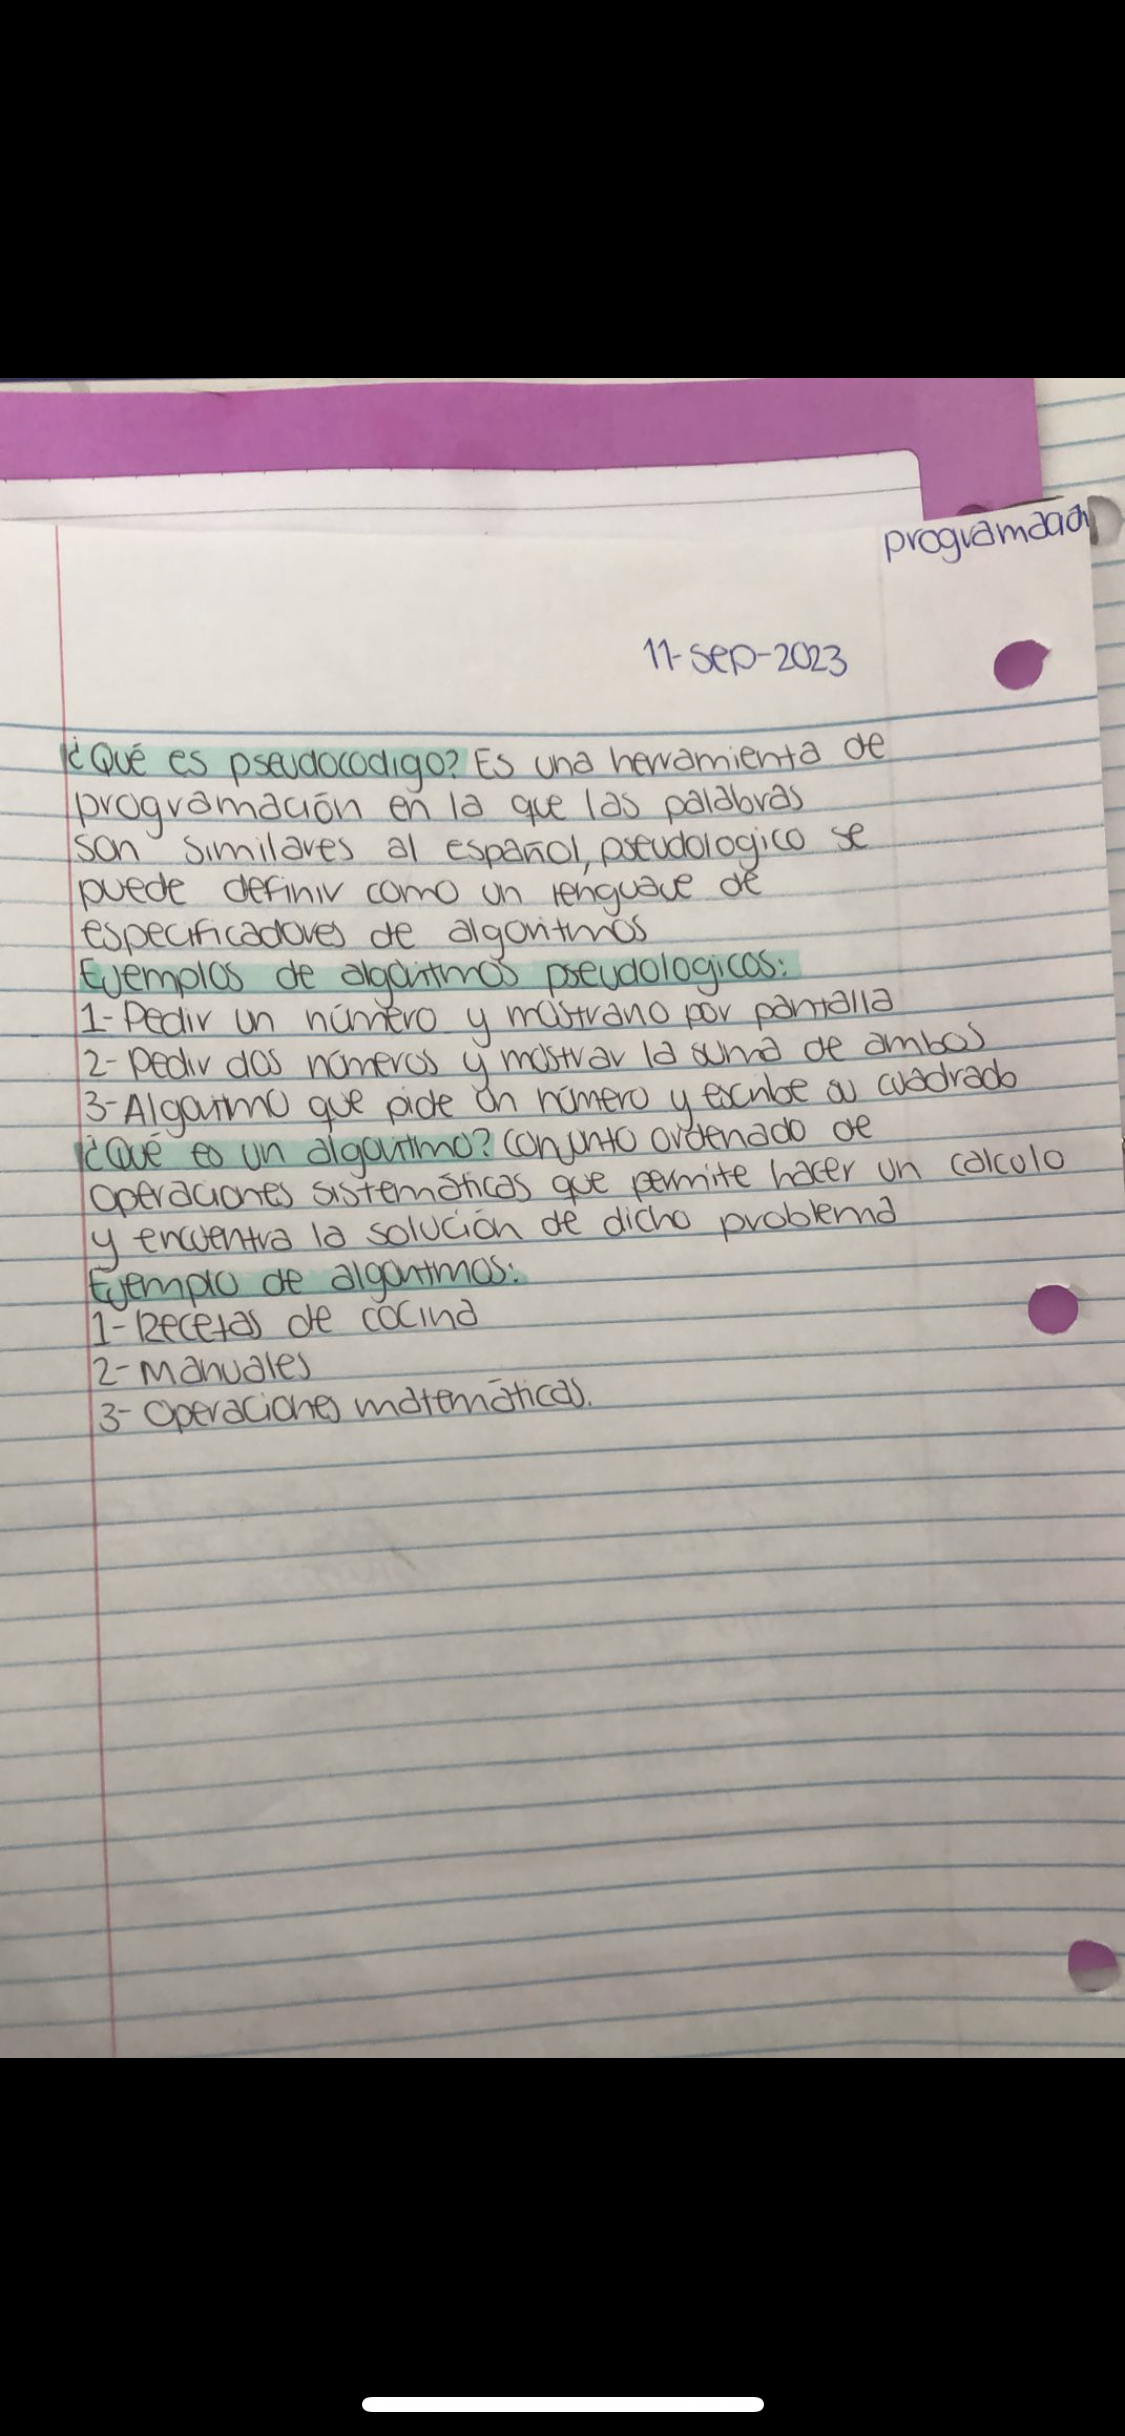 programación
11-sep-2023
¿Qué es pseudocodigo? Es una herramienta de
programación en la que las palabras
son similares al español, pseudologico se
puede definir como un lenguaje de
especificadores de algoritmos
Ejemplos de algoritmos pseudologicos:
1- Pedir un número y mostrarlo por pantalla
2- Pedir dos números y mostrar la suma de ambos
3- Algoritmo que pide un número y escribe su cuadrado
¿Qué es un algoritmo? Conjunto ordenado de
operaciones sistemáticas que permite hacer un calculo
y encuentra la solución de dicho problema
Ejemplo de algoritmos:
1- Recetas de cocina
2- Manuales
3- Operaciones matemáticas.